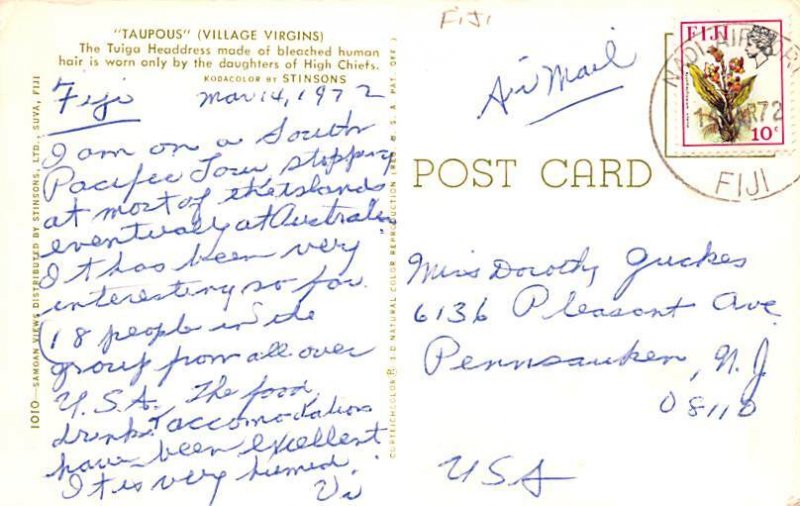 "TAUPOUS" (VILLAGE VIRGINS)
The Tuiga Headdress made of bleached human
hair is worn only by the daughters of High Chiefs.
KODACOLOR BY STINSONS
Fiji Mar 14, 1972
I am on a South
Pacific Tour, stopping
at most of the islands
eventually at Australia
It has been very
interesting so far.
(18 people in the
group from all over
U.S.A. The food,
drink & accomodations
have been excellent
It is very humid.
Vi
1010—SAMOAN VIEWS DISTRIBUTED BY STINSONS, LTD., SUVA, FIJI
CURTEICHCOLOR® 3-D NATURAL COLOR REPRODUCTION (REG. U S A PAT. OFF.)
FIJI
Air Mail
POST CARD
FIJI
10c
NADI AIRPORT
MAR72
FIJI
Miss Dorothy Guckes
6136 Pleasant Ave
Pennsauken, N.J
08110
USA